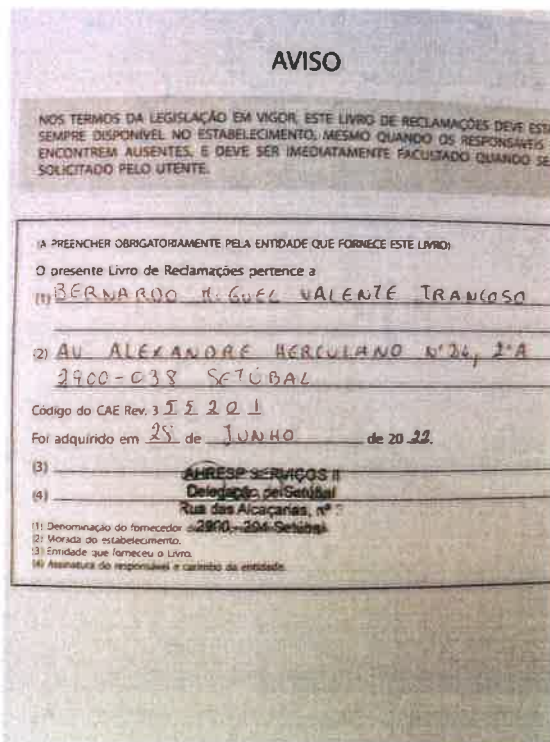 AVISO
NOS TERMOS DA LEGISLAÇÃO EM VIGOR, ESTE LIVRO DE RECLAMAÇÕES DEVE
SEMPRE DISPONÍVEL NO ESTABELECIMENTO, MESMO QUANDO OS RESPONSÁVEIS
ENCONTREM AUSENTES, E DEVE SER IMEDIATAMENTE FACULTADO QUANDO
SOLICITADO PELO UTENTE.
(A PREENCHER OBRIGATORIAMENTE PELA ENTIDADE QUE FORNECE ESTE LIVRO)
O presente Livro de Reclamações pertence a
(1) BERNARDO MIGUEL VALENTE TRANCOSO
(2) AV ALEXANDRE HERCULANO Nº 2º A
2900-038 SETÚBAL
Código do CAE Rev. 3 5 5 2 0 1
Foi adquirido em de JUNHO de 20 22.
(3) AHRESP SERVIÇOS II
(4) Delegação de Setúbal
Rua das Alcaçarias, nº
2900 - 294 Setúbal
(1) Denominação do fornecedor
(2) Morada do estabelecimento.
(3) Entidade que forneceu o Livro.
(4) Assinatura do responsável e carimbo da entidade.